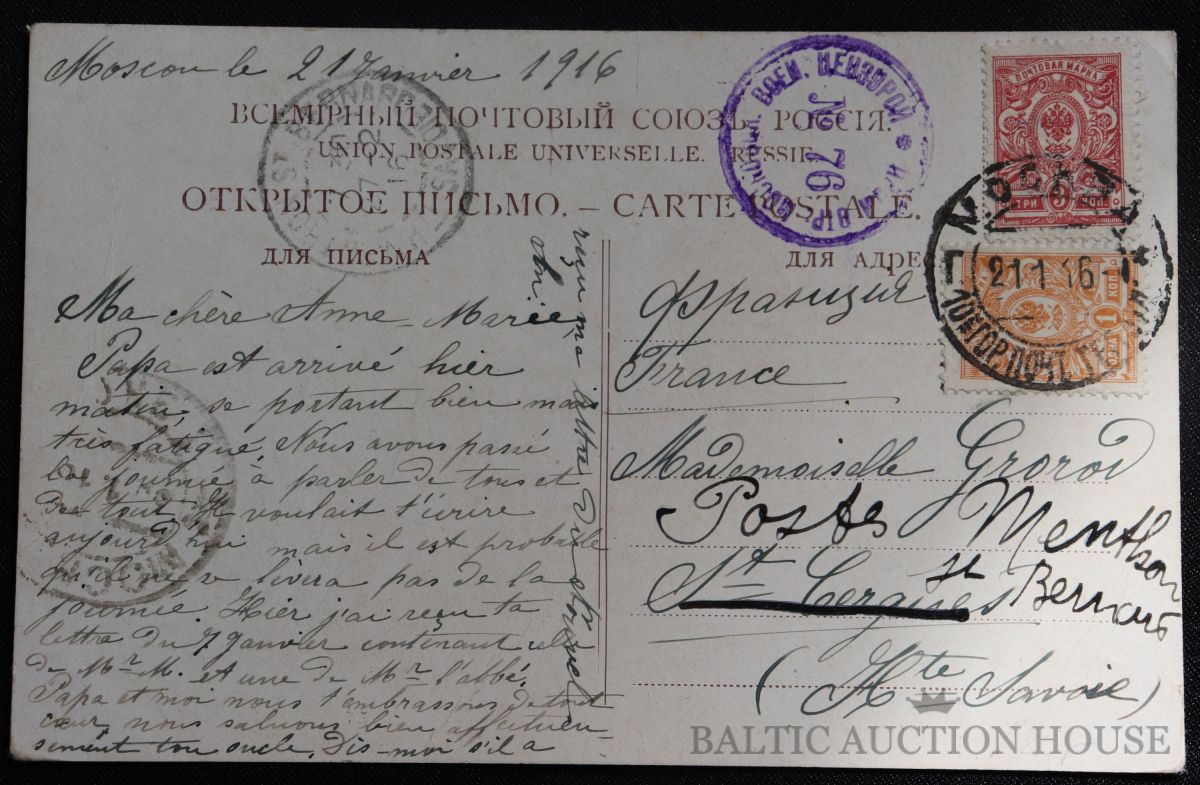 Moscou le 21 Janvier 1916
ВСЕМІРНЫЙ ПОЧТОВЫЙ СОЮЗЪ. РОССІЯ.
UNION POSTALE UNIVERSELLE. RUSSIE
ОТКРЫТОЕ ПИСЬМО. – CARTE POSTALE.
ДЛЯ ПИСЬМА
ДЛЯ АДРЕ
Ma chère Anne-Marie
Papa est arrivé hier
matin, se portant bien mais
très fatigué. Nous avons passé
la journée à parler de tous et
de tout. Il voulait t'écrire
aujourd'hui mais il est probable
qu'il ne se lèvera pas de la
journée. Hier j'ai reçu ta
lettre du 7 Janvier contenant celle
de Mr M. et une de Mr l'abbé.
Papa et moi nous t'embrassons de tout
cœur, nous saluons bien affectueu-
sement ton oncle. Dis-moi s'il a
reçu ma lettre du
Франция
France
Mademoiselle Grorod
Postes Menthon
St Bernard
St Cergues
(Hte Savoie)
ВОЕН. ЦЕНЗУРОЙ
№ 76
ПОЧТОВАЯ МАРКА
ТРИ 3 КОП
1 КОП
МОСКВА
21 1 16
ГОР. ПОЧТ. ТЕ
BALTIC AUCTION HOUSE